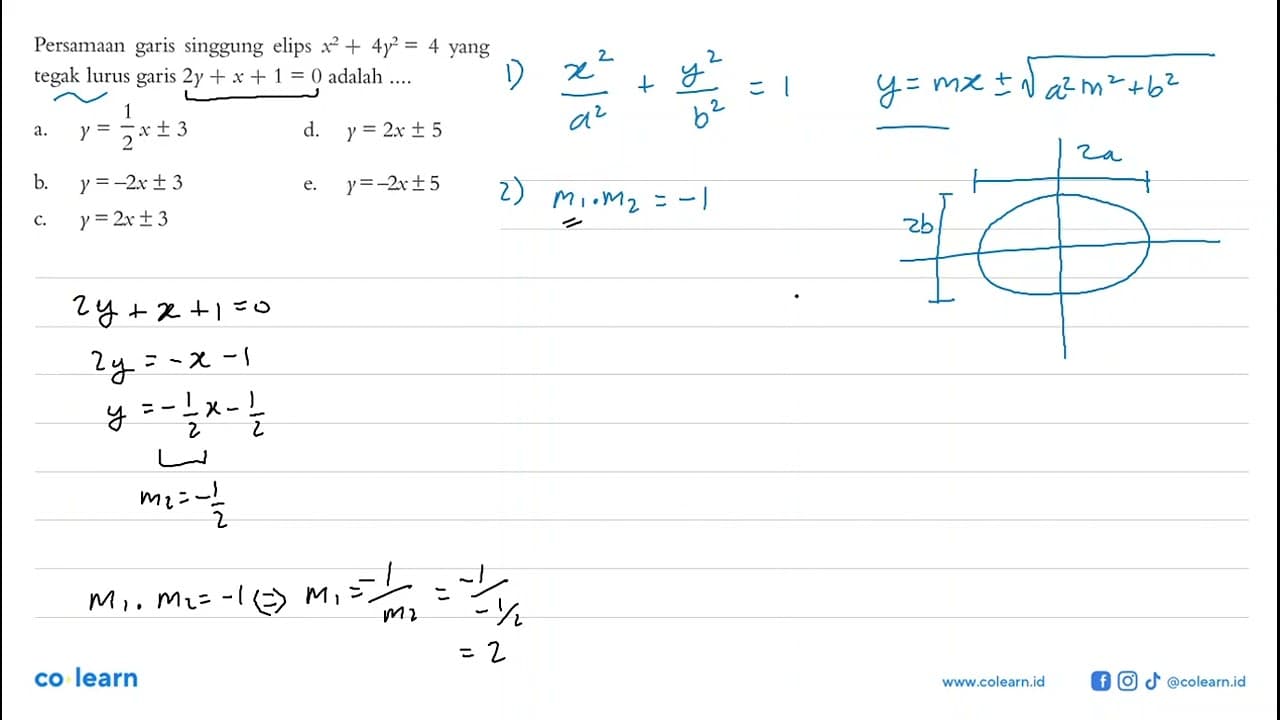 Persamaan garis singgung elips x² + 4y² = 4 yang
tegak lurus garis 2y + x + 1 = 0 adalah ....
a. y = 1/2 x ± 3
b. y = –2x ± 3
c. y = 2x ± 3
d. y = 2x ± 5
e. y = –2x ± 5
1) x²/a² + y²/b² = 1
y = mx ± √(a²m² + b²)
2) m₁.m₂ = -1
2a
2b
2y + x + 1 = 0
2y = -x - 1
y = -1/2 x - 1/2
m₂ = -1/2
m₁. m₂ = -1 ⇔ m₁ = -1/m₂ = -1/-1/2
= 2
co learn
www.colearn.id
@colearn.id